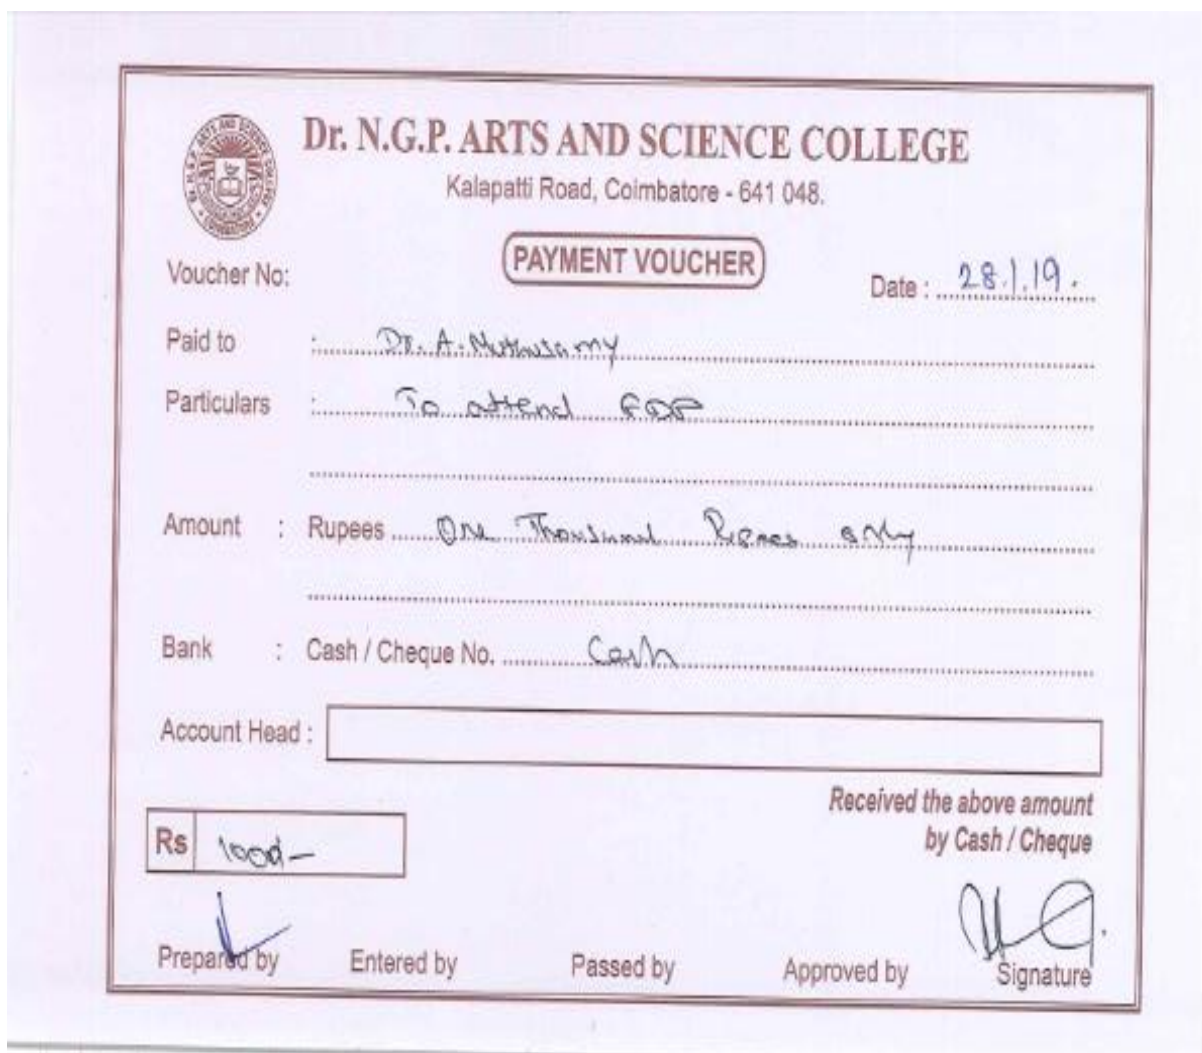 Dr. N.G.P. ARTS AND SCIENCE COLLEGE
Kalapatti Road, Coimbatore - 641 048.
PAYMENT VOUCHER
Voucher No:
Date : 28.1.19.
Paid to : Dr. A. Muthusamy
Particulars : To attend FDP
Amount : Rupees One Thousand Rupees only
Bank : Cash / Cheque No. Cash
Account Head :
Received the above amount
by Cash / Cheque
Rs 1000/-
Prepared by Entered by Passed by Approved by Signature